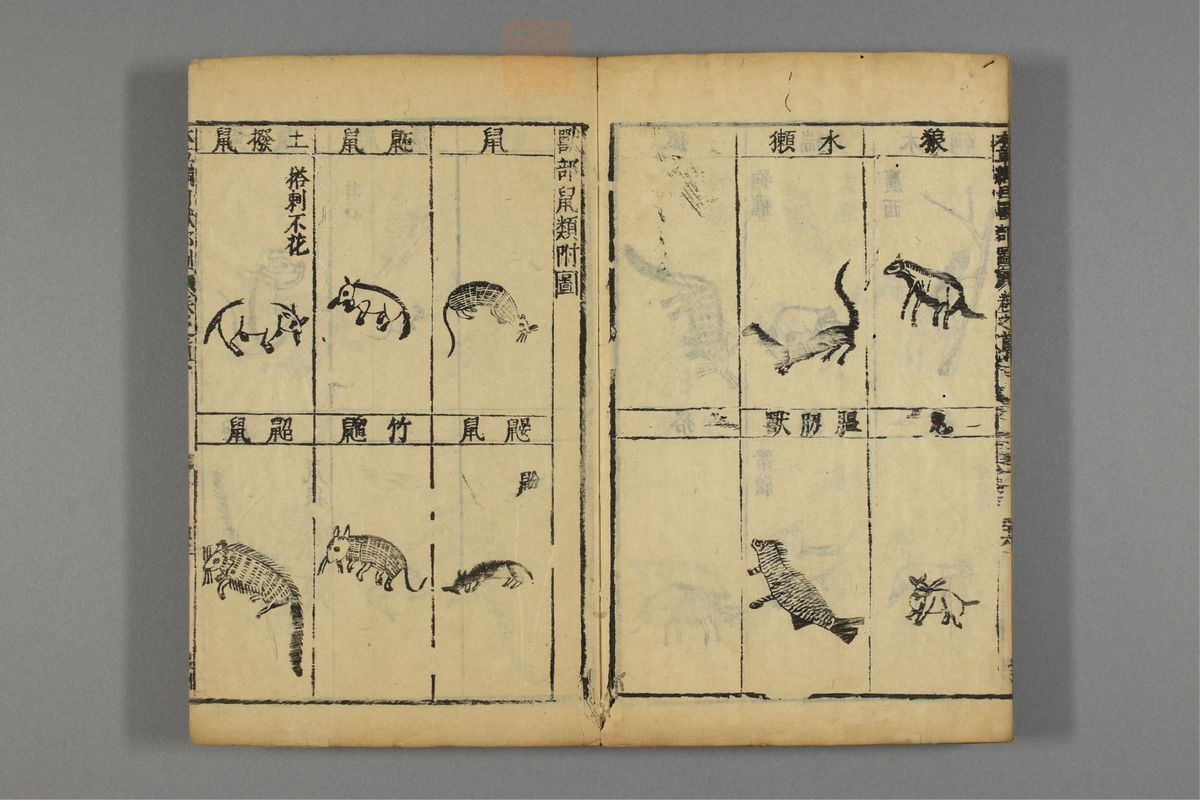 狼
水獺
兔
膃肭獸
獸部鼠類附圖
鼠
鼫鼠
土撥鼠
搭刺不花
鼴鼠
鼢
竹䶉
鼠